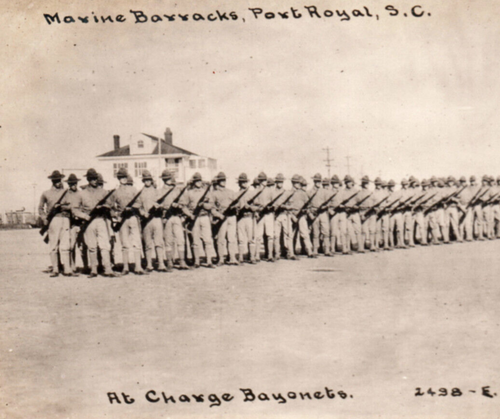 Marine Barracks, Port Royal, S.C.
At Charge Bayonets.
2498-E.